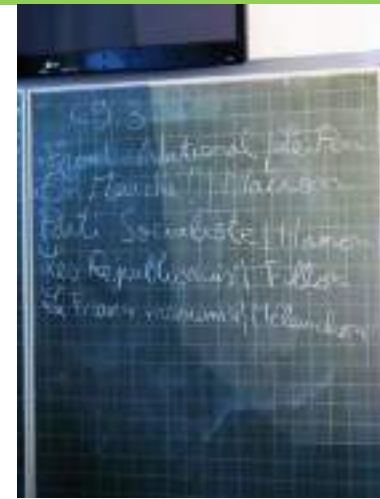 Front National / Le Pen
En Marche ! / Macron
Parti Socialiste / Hamon
Les Républicains / Fillon
La France insoumise / Mélenchon